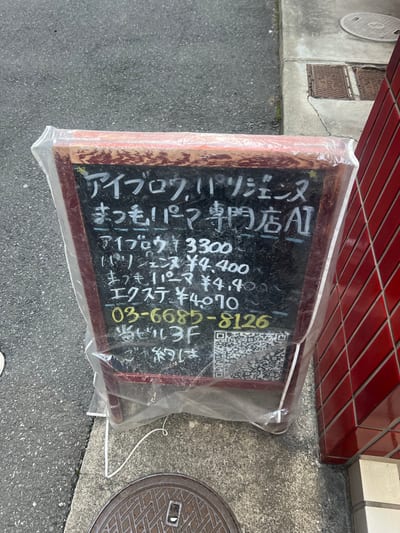 アイブロウ,パリジェンヌ
まつ毛パーマ専門店AI
アイブロウ¥3300
パリジェンヌ¥4,400
まつ毛パーマ¥4,4
エクステ¥4070
03-6685-8126
当ビル3F
約は